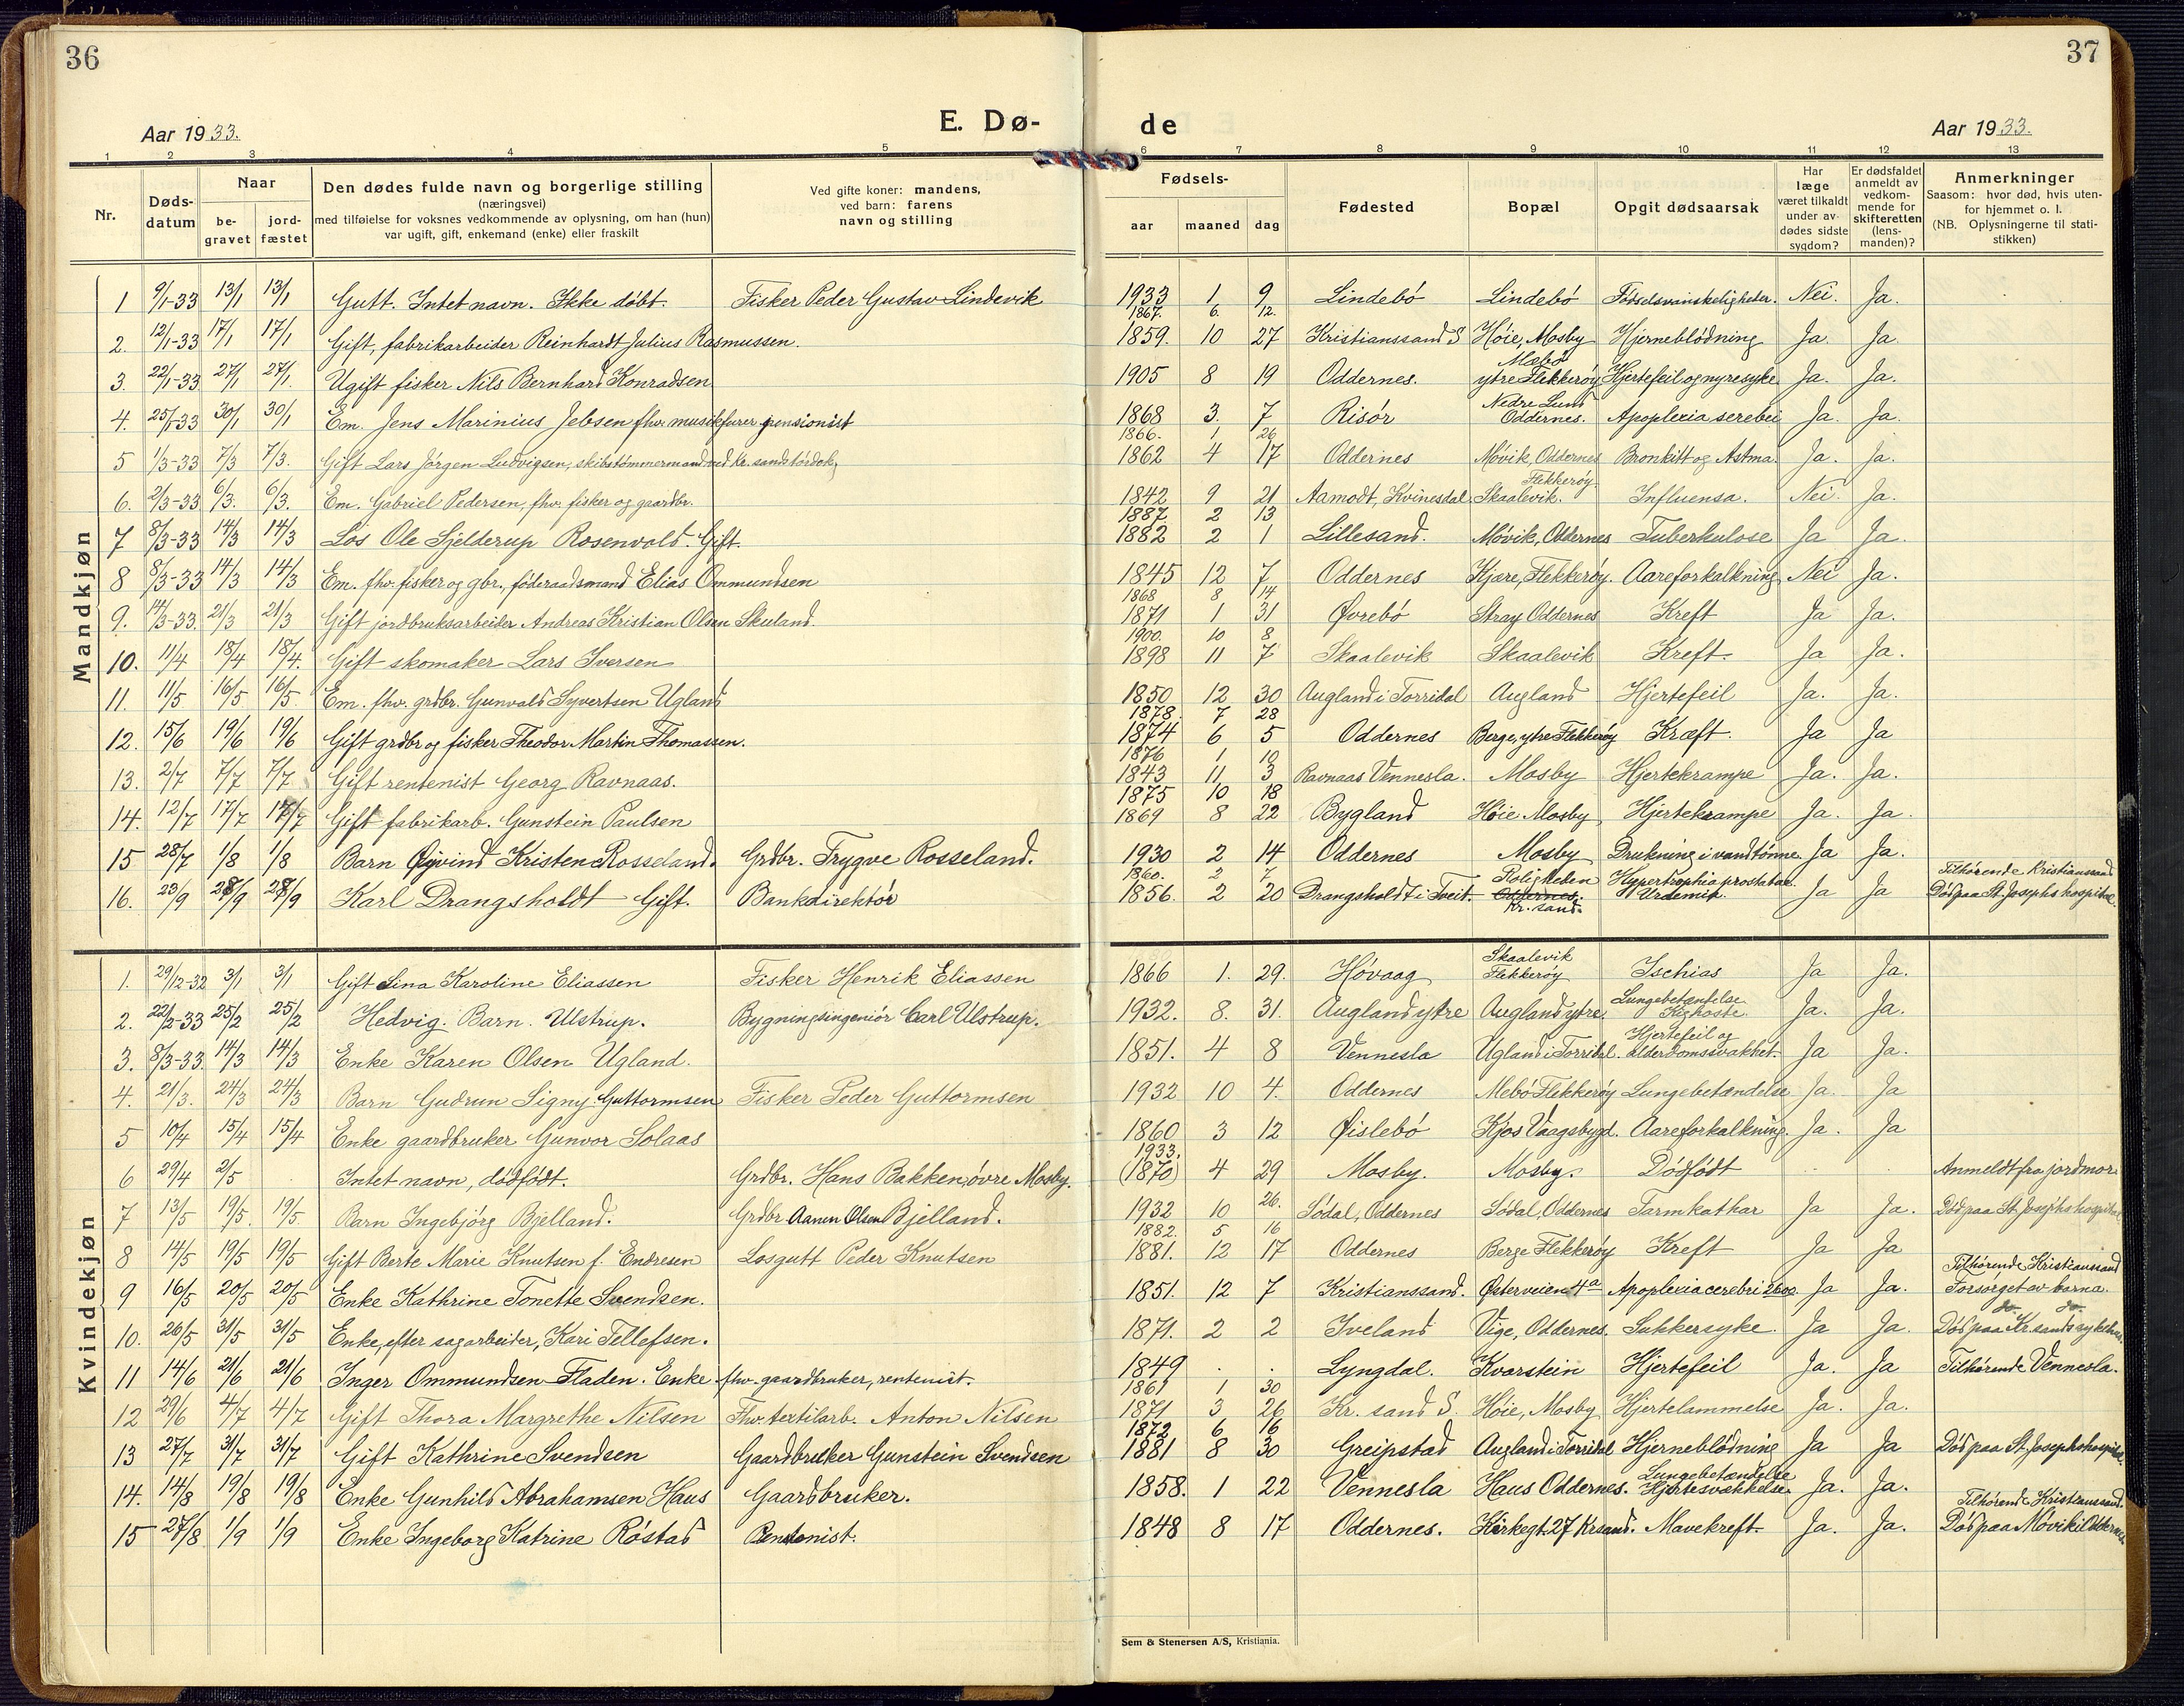 36
37
Aar 1933.
E. Dø-
de
Aar 1933.
1 2 3 4 5 6 7 8 9 10 11 12 13
Nr.
Døds-
datum
Naar
be-
gravet
jord-
fæstet
Den dødes fulde navn og borgerlige stilling
(næringsvei)
med tilføielse for voksnes vedkommende av oplysning, om han (hun)
var ugift, gift, enkemand (enke) eller fraskilt
Ved gifte koner: mandens,
ved barn: farens
navn og stilling
Fødsels-
aar maaned dag
Fødested
Bopæl
Opgit dødsaarsak
Har
læge
været tilkaldt
under av-
dødes sidste
sygdom?
Er dødsfaldet
anmeldt av
vedkom-
mende for
skifteretten
(lens-
manden)?
Anmerkninger
Saasom: hvor død, hvis uten-
for hjemmet o. l.
(NB. Oplysningerne til stati-
stikken)
Mandkjøn
1 9/1-33 13/1 13/1 Gutt. Intet navn. Ikke døbt. Fisker Peder Gustav Lindevik 1933 1 9 Lindebö Lindebö Fødselsvanskeligheter. Nei. Ja.
1867. 6. 12.
2. 12/1-33 17/1 17/1 Gift, fabrikarbeider Reinhardt Julius Rasmussen. 1859. 10 27 Kristianssand S Høie, Mosby Hjerneblødning Ja. Ja.
3. 22/1-33 27/1 27/1 Ugift fisker Nils Bernhard Konradsen 1905 8 19 Oddernes. Mæbø ytre Flekkerøy Hjertefeil og nyresyke Ja. Ja.
4. 25/1-33 30/1 30/1 Em. Jens Marinius Jebsen fhv. musikfurer pensionist 1868 3. 7 Risör Nedre Lund Oddernes. Apoplexia serebei Ja. Ja.
1866. 1 26
5 1/3-33 7/3 7/3. Gift Lars Jörgen Ludvigsen, skibstømmermand ved Kr.sands tørdok, 1862 4 17 Oddernes Møvik, Oddernes Bronkitt og Astma. Ja. Ja.
6. 2/3-33 6/3. 6/3. Em. Gabriel Pedersen, fhv. fisker og gaardbr. 1842 9 21 Aamodt, Kvinesdal Flekkerøy Skaalevik. Influensa. Nei. Ja.
1887 2 13
7 8/3-33 14/3 14/3 Los Ole Sjelderup Rosenvold. Gift. 1882 2 1 Lillesand. Møvik, Oddernes Tuberkulose Ja Ja.
8 8/3-33 14/3 14/3 Em. fhv. fisker og gbr., föderaadsmand Elias Ommundsen 1845 12 7 Oddernes Kjære, Flekkerøy. Aareforkalkning Nei Ja.
1868 8 14
9. 14/3-33. 21/3 21/3 Gift jordbruksarbeider Andreas Kristian Olsen Skuland. 1871 1 31 Øvrebö Stray Oddernes Kreft Ja Ja.
1900. 10 8
10. 11/4 18/4 18/4. Gift skomaker Lars Iversen 1898 11 7 Skaalevik Skaalevik Kreft. Ja Ja.
11. 11/5 16/5 16/5. Em. fhv. grdbr. Gunvald Syvertsen Ugland 1850 12 30 Augland i Torridal Augland Hjertefeil Ja. Ja.
1878. 7 28
12. 15/6 19/6 19/6 Gift grdbr og fisker Theodor Martin Thomassen. 1874 6 5 Oddernes Berge, ytre Flekkerøy Kræft. Ja Ja
1876 1 10
13. 2/7 7/7 7/7 Gift rentenist Georg Ravnaas. 1843 11 3 Ravnaas Vennesla. Mosby Hjertekrampe Ja. Ja.
1875 10 18
14. 12/7 17/7 17/7 Gift fabrikarb. Gunstein Paulsen 1869 8 22 Bygland Høie Mosby Hjertekrampe Ja. Ja.
15 28/7 1/8 1/8 Barn Øivind Kristen Rosseland. Grdbr. Trygve Rosseland. 1930 2 14 Oddernes Mosby Drukning i vandtønne. Ja Ja.
1860. 2 7
16. 23/9 28/9 28/9 Karl Drangsholdt Gift. Bankdirektör 1856. 2 20 Drangsholdt i Tveit. Roligheden Oddernes. Kr. sand. Hypertrophia prostatae Urdemik. Ja Ja Tilhørende Kristianssand Död paa St. Josephs hospital.
Kvindekjøn
1. 29/12-32 3/1 3/1 Gift Lina Karoline Eliassen Fisker Henrik Eliassen 1866 1. 29. Høvaag Skaalevik Flekkerøy Ischias Ja Ja.
2. 22/2-33 25/2 25/2 Hedvig. Barn. Ulstrup. Bygningsingeniör Carl Ulstrup. 1932. 8. 31. Augland ytre Augland ytre Lungebetændelse Kighoste. Ja. Ja.
3. 8/3-33. 14/3 14/3 Enke Karen Olsen Ugland. 1851. 4 8 Vennesla Ugland i Torridal. Hjertefeil og alderdomssvakhet. Ja Ja.
4. 21/3. 24/3 24/3 Barn Gudrun Signy Guttormsen Fisker Peder Guttormsen 1932 10 4. Oddernes Mebö Flekkerøy Lungebetændelse Ja. Ja
5 10/4 15/4 15/4 Enke gaardbruker Gunvor Solaas 1860 3 12 Øislebö Kjos Vaagsbygd. Aareforkalkning. Ja. Ja
1933.
6 29/4 2/5 Intet navn, dödfödt. Grdbr. Hans Bakken, övre Mosby. (1870) 4 29 Mosby. Mosby. Dödfödt Anmeldt fra jordmor
7 13/5 19/5. 19/5. Barn Ingebjörg Bjelland. Grdbr. Aanen Olsen Bjelland. 1932 10 26. Södal, Oddernes Södal, Oddernes Tarmkathar Ja Ja. Död paa St. Josephs hospital
1882. 5 16
8 14/5 19/5 19/5 Gift Berte Marie Knutsen f. Endresen Losgutt Peder Knutsen 1881. 12 17 Oddernes Berge Flekkerøy Kreft Ja Ja
9 16/5 20/5 20/5 Enke Kathrine Tonette Svendsen. 1851. 12 7 Kristianssand. Østerveien 4a Apoplexia cerebri Ja Ja. Tilhørende Kristianssand Forsørget av barna.
10. 26/5 31/5 31/5 Enke, efter sagarbeider, Kari Tellefsen. 1871. 2 2 Iveland Vige, Oddernes. Sukkersyke Ja Ja. do. do. Död paa Kr.sands sykehus
11 14/6 21/6 21/6 Inger Ommundsen Fladen. Enke fhv. gaardbruker, rentenist. 1849 . . Lyngdal. Kvarstein Hjertefeil Ja. Ja Tilhørende Vennesla.
1861 1 30
12 29/6 4/7 4/7 Gift Thora Margrethe Nilsen Fhv. textilarb. Anton Nilsen 1871 3 26 Kr. sand S. Høie, Mosby Hjertelammelse Ja. Ja.
1872 6 16
13 27/7 31/7 31/7 Gift Kathrine Svendsen Gaardbruker Gunstein Svendsen 1881 8 30 Greipstad Augland i Torridal Hjerneblødning Ja Ja Död paa St. Josephs hospital.
14. 14/8 19/8 19/8 Enke Gunhild Abrahamsen Haus Gaardbruker. 1858. 1 22 Vennesla Haus Oddernes. Lungebetændelse Hjertesvækkelse Ja. Ja.
15 27/8 1/9 1/9 Enke Ingeborg Katrine Röstad Pensionist. 1848 8 17 Oddernes. Kirkegt. 27 Krsand. Mavekreft. Ja. Ja. Tilhørende Kristianssand. Död paa Møvik i Oddernes
Sem & Stenersen A/S, Kristiania.